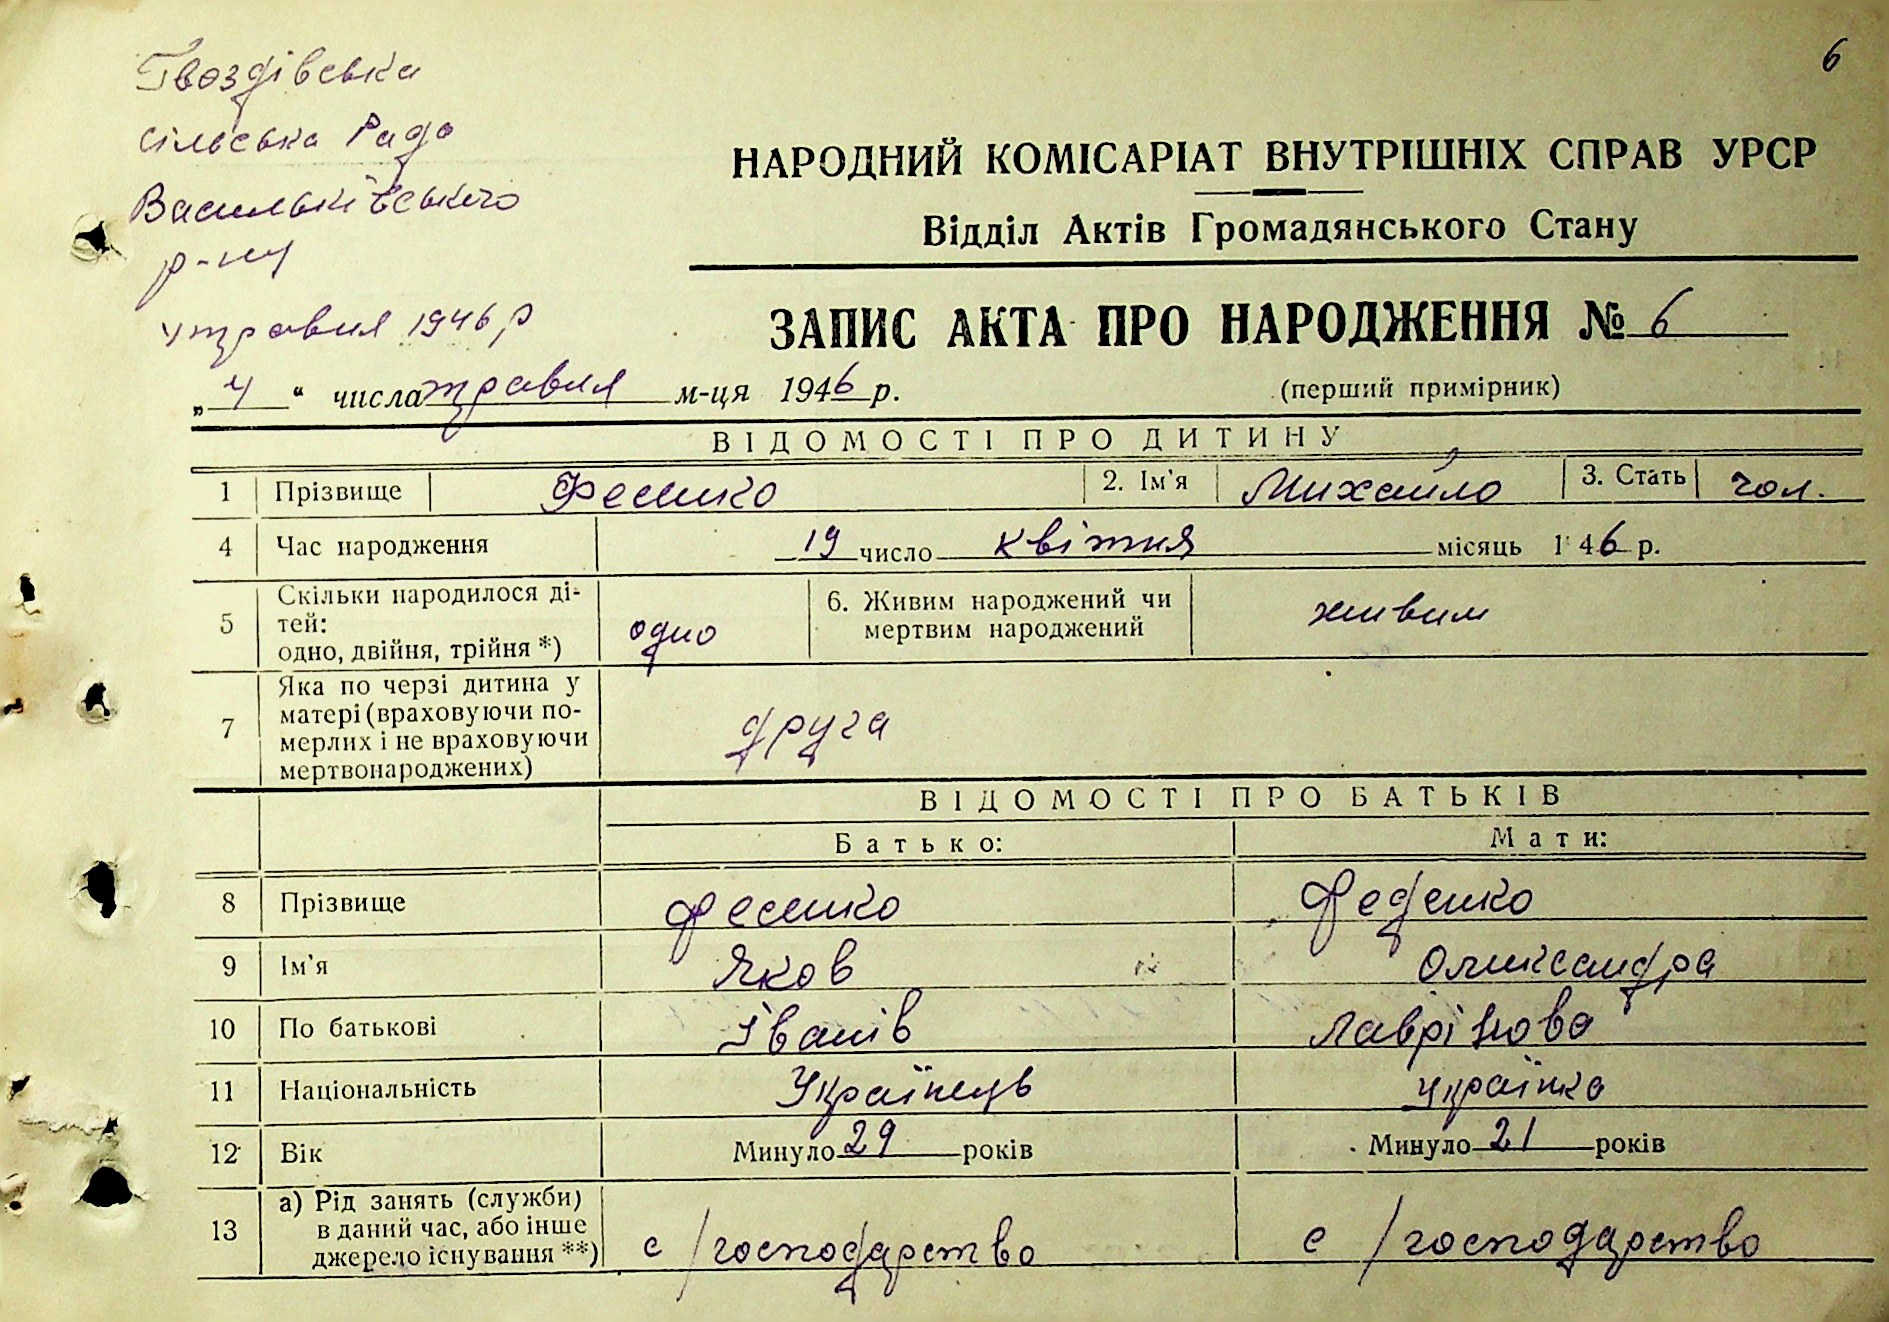 6
Гвоздівська
сільська Рада
Васильківського
р-ну
4 травня 1946 р
НАРОДНИЙ КОМІСАРІАТ ВНУТРІШНІХ СПРАВ УРСР
Відділ Актів Громадянського Стану
ЗАПИС АКТА ПРО НАРОДЖЕННЯ № 6
„4“ числа травня м-ця 1946 р. (перший примірник)
ВІДОМОСТІ ПРО ДИТИНУ
1 Прізвище Фесенко 2. Ім'я Михайло 3. Стать чол.
4 Час народження 19 число квітня місяць 1 46 р.
5 Скільки народилося ді-
тей:
одно, двійня, трійня *) одно
6. Живим народжений чи
мертвим народжений живим
7 Яка по черзі дитина у
матері (враховуючи по-
мерлих і не враховуючи
мертвонароджених) друга
ВІДОМОСТІ ПРО БАТЬКІВ
Батько: Мати:
8 Прізвище Фесенко Феденко
9 Ім'я Яков Олександра
10 По батькові Іванів Лаврінова
11 Національність Українець українка
12 Вік Минуло 29 років Минуло 21 років
13 а) Рід занять (служби)
в даний час, або інше
джерело існування **) с/господарство с/господарство